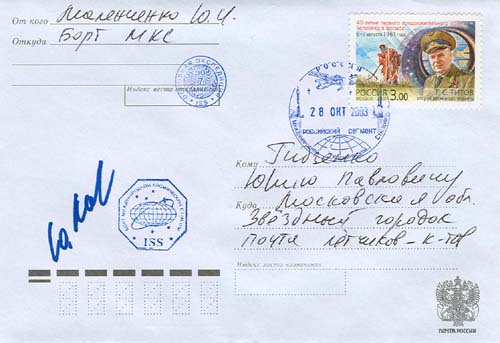 От кого Маленченко Ю.И.
Откуда Борт МКС
Индекс места отправления
ISS
40-летие первого продолжительного полета человека в космос
6-7 августа 1961 г.
РОССИЯ 3.00
Г.С. ТИТОВ
РОССИЯ
28 ОКТ 2003
РОССИЙСКИЙ СЕГМЕНТ
ISS
Кому Гидзенко
Юрию Павловичу
Куда Московская обл.
Звёздный городок
почта лётчиков-к-тов
Индекс места назначения
ПОЧТА РОССИИ